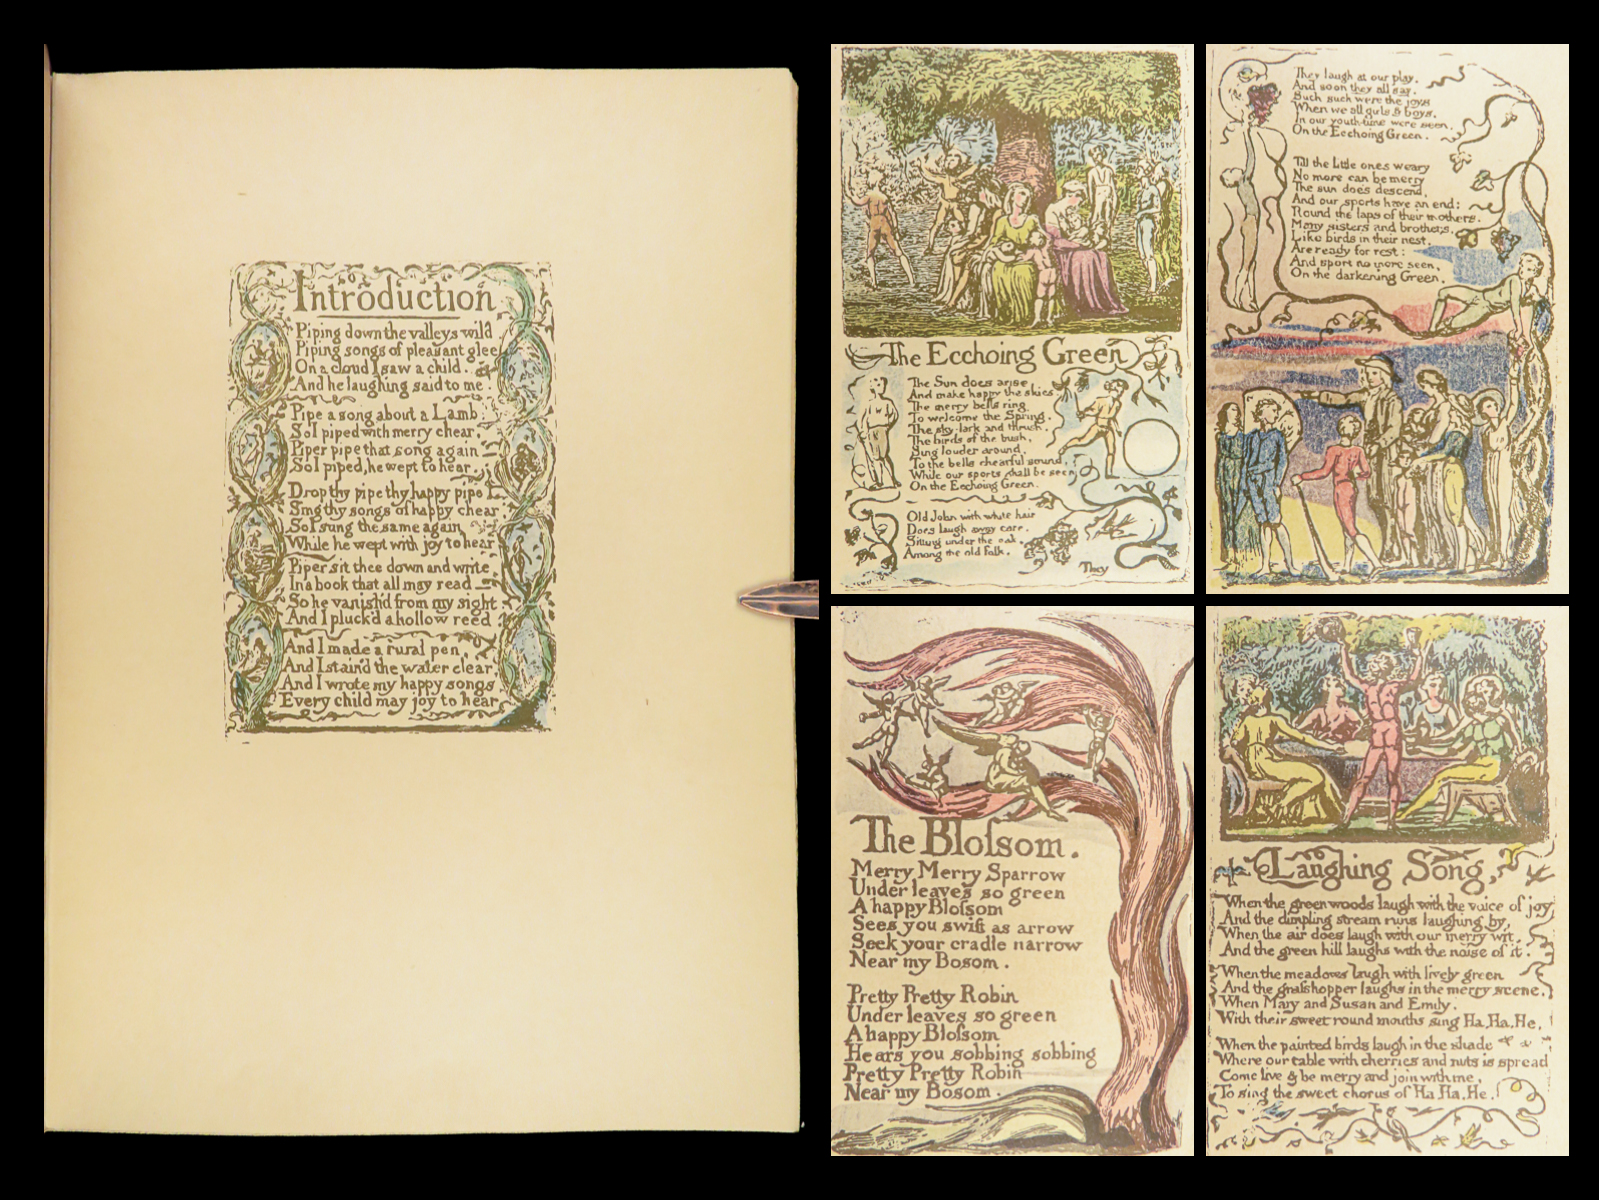 Introduction
Piping down the valleys wild
Piping songs of pleasant glee
On a cloud I saw a child.
And he laughing said to me.
Pipe a song about a Lamb:
So I piped with merry chear,
Piper pipe that song again—
So I piped, he wept to hear.
Drop thy pipe thy happy pipe
Sing thy songs of happy chear
So I sung the same again
While he wept with joy to hear
Piper sit thee down and write
In a book that all may read—
So he vanish'd from my sight
And I pluck'd a hollow reed
And I made a rural pen,
And I stain'd the water clear,
And I wrote my happy songs
Every child may joy to hear
The Ecchoing Green
The Sun does arise,
And make happy the skies
The merry bells ring,
To welcome the Spring.
The sky-lark and thrush,
The birds of the bush,
Sing louder around,
To the bells chearful sound,
While our sports shall be seen
On the Ecchoing Green.
Old John with white hair
Does laugh away care,
Sitting under the oak,
Among the old folk,
They
They laugh at our play,
And soon they all say,
Such such were the joys
When we all girls & boys,
In our youth-time were seen,
On the Ecchoing Green.
Till the little ones weary
No more can be merry
The sun does descend,
And our sports have an end:
Round the laps of their mothers,
Many sisters and brothers,
Like birds in their nest,
Are ready for rest:
And sport no more seen,
On the darkening Green.
The Bloſsom.
Merry Merry Sparrow
Under leaves so green
A happy Bloſsom
Sees you swift as arrow
Seek your cradle narrow
Near my Bosom.
Pretty Pretty Robin
Under leaves so green
A happy Bloſsom
Hears you sobbing sobbing
Pretty Pretty Robin
Near my Bosom.
Laughing Song,
When the green woods laugh with the voice of joy
And the dimpling stream runs laughing by,
When the air does laugh with our merry wit,
And the green hill laughs with the noise of it.
When the meadows laugh with lively green
And the graſshopper laughs in the merry scene,
When Mary and Susan and Emily.
With their sweet round mouths sing Ha, Ha, He,
When the painted birds laugh in the shade
Where our table with cherries and nuts is spread
Come live & be merry and join with me,
To sing the sweet chorus of Ha, Ha, He.